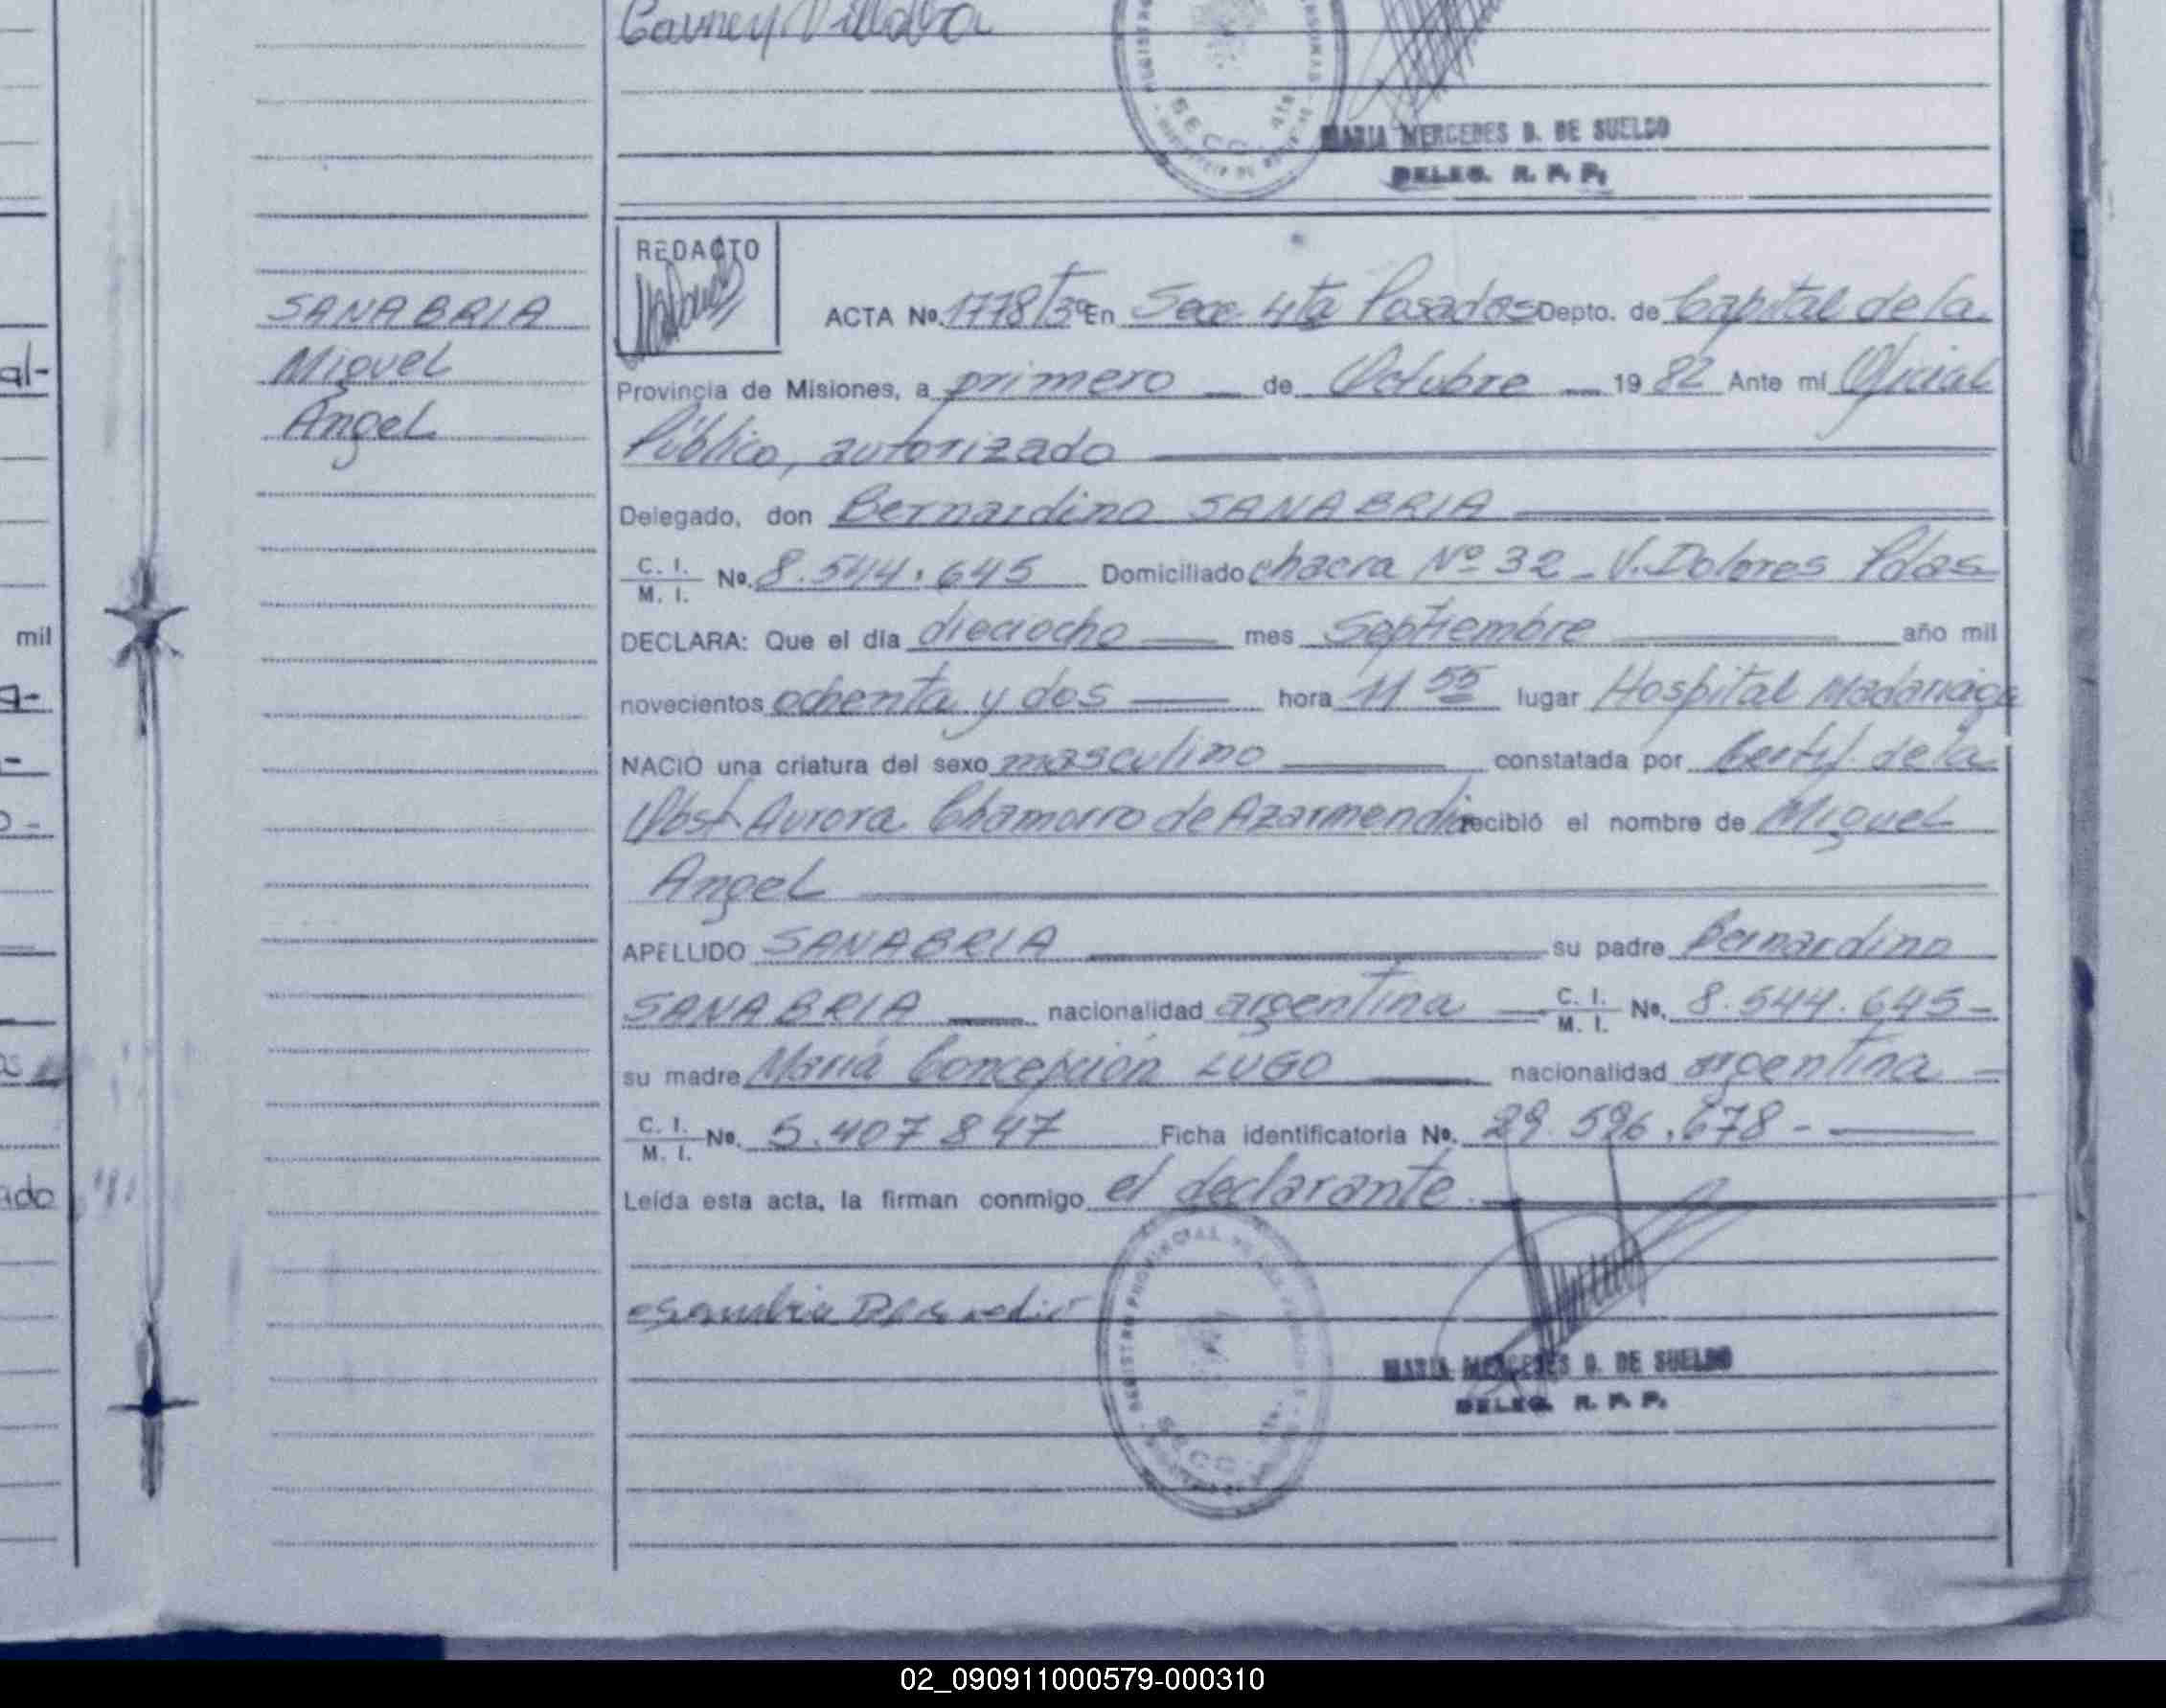 Villalba
MARIA MERCEDES D. DE SUELDO
DELEG. R. P. P.
REDACTO
SANABRIA
Miguel
Angel
ACTA No. 1778/Tº3º En Secc. 4ta Posadas Depto. de Capital de la
Provincia de Misiones, a primero de Octubre 19 82 Ante mi Oficial
Público, autorizado
Delegado, don Bernardino SANABRIA
C. I. M. I. No. 8.544.645 Domiciliado chacra Nº 32 - V. Dolores Pdas
DECLARA: Que el día dieciocho mes Septiembre año mil
novecientos ochenta y dos hora 11 55 lugar Hospital Madariaga
NACIO una criatura del sexo masculino constatada por Certif. de la
Obst. Aurora Chamorro de Azarmendia recibió el nombre de Miguel
Angel
APELLIDO SANABRIA su padre Bernardino
SANABRIA nacionalidad argentina C. I. M. I. No. 8.544.645-
su madre María Concepción LUGO nacionalidad argentina -
C. I. M. I. No. 5.407 847 Ficha identificatoria No. 29 596.678-
Leída esta acta, la firman conmigo el declarante.
REGISTRO PROVINCIAL DE LAS PERSONAS
SECC. 4ta.
MARIA MERCEDES D. DE SUELDO
DELEG. R. P. P.
mil
ado
02_090911000579-000310